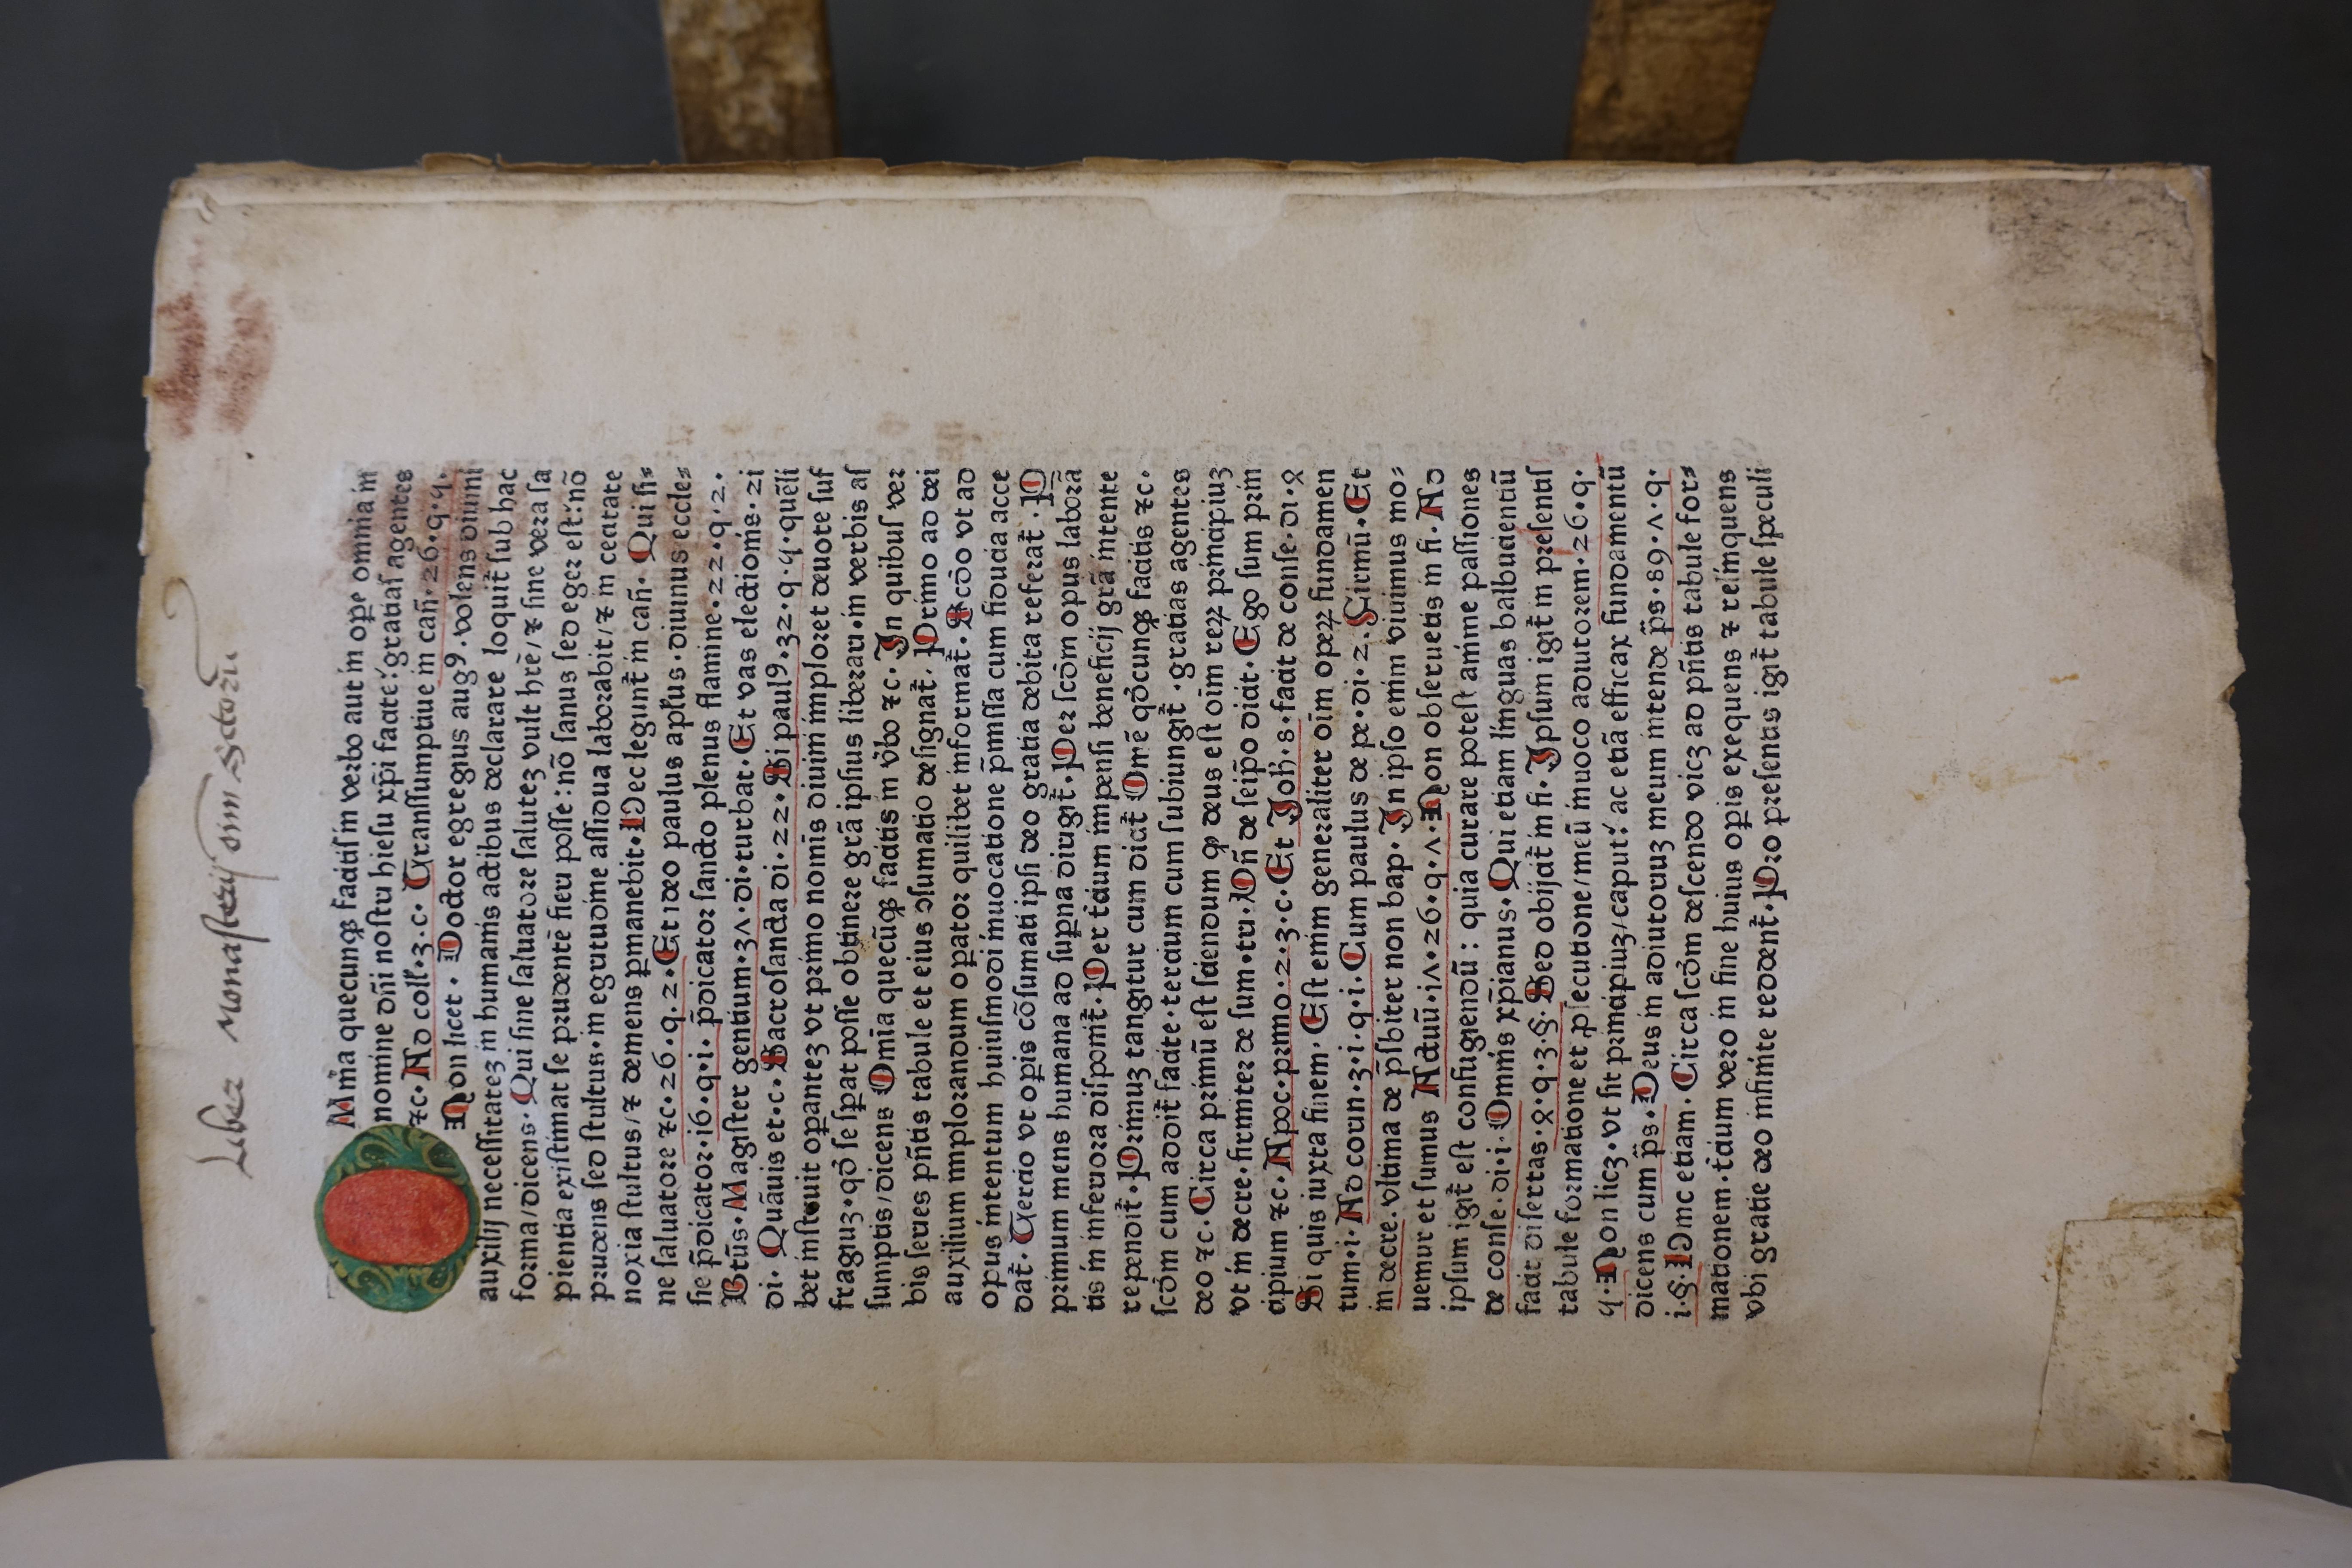 Liber Monasterij oim̄ sctorū
OMīa quecunqȝ facitis in verbo aut in oꝑe omnia in
nomine dn̄i nostri hiesu xp̄i facite: gratias agentes
⁊c. Ad coll. 3. c. Transsumptiue in can̄. 26. q. 4.
Non licet. Doctor egregius augꝰ. volens diuini
auxilij necessitateȝ in humanis actibus declarare loquit̄ sub hac
forma/dicens. Qui sine saluatore saluteȝ vult hr̄e/⁊ sine vera sa
pientia existimat se prudentē fieri posse: nō sanus sed eger est: nō
prudens sed stultus. in egritudīe assidua laborabit/⁊ in cecitate
noxia stultus/⁊ demens ꝑmanebit. Hec legunt̄ in can̄. Qui si⸗
ne saluatore ⁊c. 26. q. 2. Et ideo paulus apl̄us. diuinus eccle⸗
sie p̄dicator. i6. q. i. p̄dicator sancto plenus flamine. 22. q. 2.
Btūs. Magister gentium. 3ʌ. di. turbat. Et vas electionis. 2i
di. Quāuis et. c. Sacrosancta di. 22. Si paulꝰ. 32. q. 4. quēli
bet instruit oꝑanteȝ vt primo nomīs diuini imploret deuote suf
fragiuȝ. qd̄ se sꝑat posse obtinere grā ipsius liberari. in verbis as
sumptis/dicens Omīa quecūqȝ facitis in v̄bo ⁊c. In quibus ver
bis series pn̄tis tabule et eius ɔsumatio designat̄. Primo ad dei
auxilium implorandum oꝑator quilibet informat̄. Scd̄o vt ad
opus intentum huiusmodi inuocatione p̄missa cum fiducia acce
dat. Tercio vt oꝑis cōsumati ipsi deo gratia debita referat̄. P
primum mens humana ad suꝑna dirigit̄. Per scd̄m opus laborā
tis in inferiora disponit̄. Per tcium impensi beneficij grā intente
rependit̄. Primuȝ tangitur cum dicit̄ Omē qd̄cunqȝ facitis ⁊c.
scd̄m cum addit̄ facite. tercium cum subiungit̄. gratias agentes
deo ⁊c. Circa primū est sciendum qȝ deus est oīm reꝝ principiuȝ
vt in decre. firmiter de sum. tri. Vn̄ de seip̄o dicit. Ego sum prin
cipium ⁊c. Apoc. primo. 2. 3. c. Et Joh̄. 8. facit de conse. di. 2
Si quis iuxta finem. Est enim generaliter oīm oꝑeꝝ fundamen
tum. i. Ad corin. 3. i. q. i. Cum paulus de pe. di. 2. Firmū. Et
in decre. vltima de p̄sbiter non bap. In ipso enim viuimus mo⸗
uemur et sumus Actuū. iʌ. 26. q. ʌ. Non obseruetis in fi. Ad
ipsum igit̄ est confugiendū: quia curare potest anime passiones
de conse. di. i. Omnis xp̄ianus. Qui etiam linguas balbucientiū
facit disertas. 2. q. 3. §. Sed obijcit̄ in fi. Ipsum igit̄ in presentis
tabule formatione et ꝓsecutione/meū inuoco adiutorem. 26. q.
4. Non licȝ. vt sit principiuȝ/caput: ac etiā efficax fundamentū
dicens cum p̄s. Deus in adiutoriuȝ meum intende p̄s. 89. ʌ. q.
i. §. Hinc etiam. Circa scd̄m descendo vicȝ ad pn̄tis tabule for⸗
mationem. tcium vero in fine huius oꝑis exequens ⁊ relinquens
vbi gratie deo infinite reddent̄. Pro presentis igit̄ tabule speculi